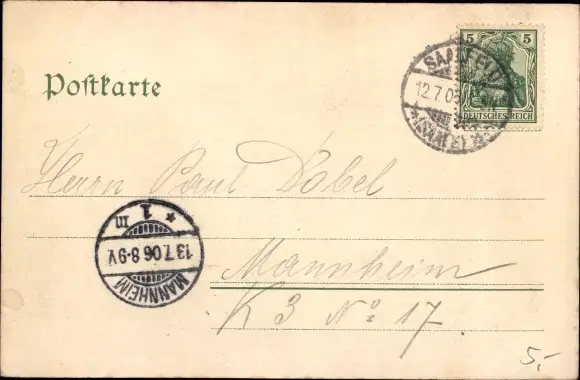 Postkarte
5 5
DEUTSCHES REICH
SAALFELD
12.7.06
Herrn Paul Dobel
Mannheim
K 3 No 17
MANNHEIM
13.7.06 8-9V.
* 1 m
5,-